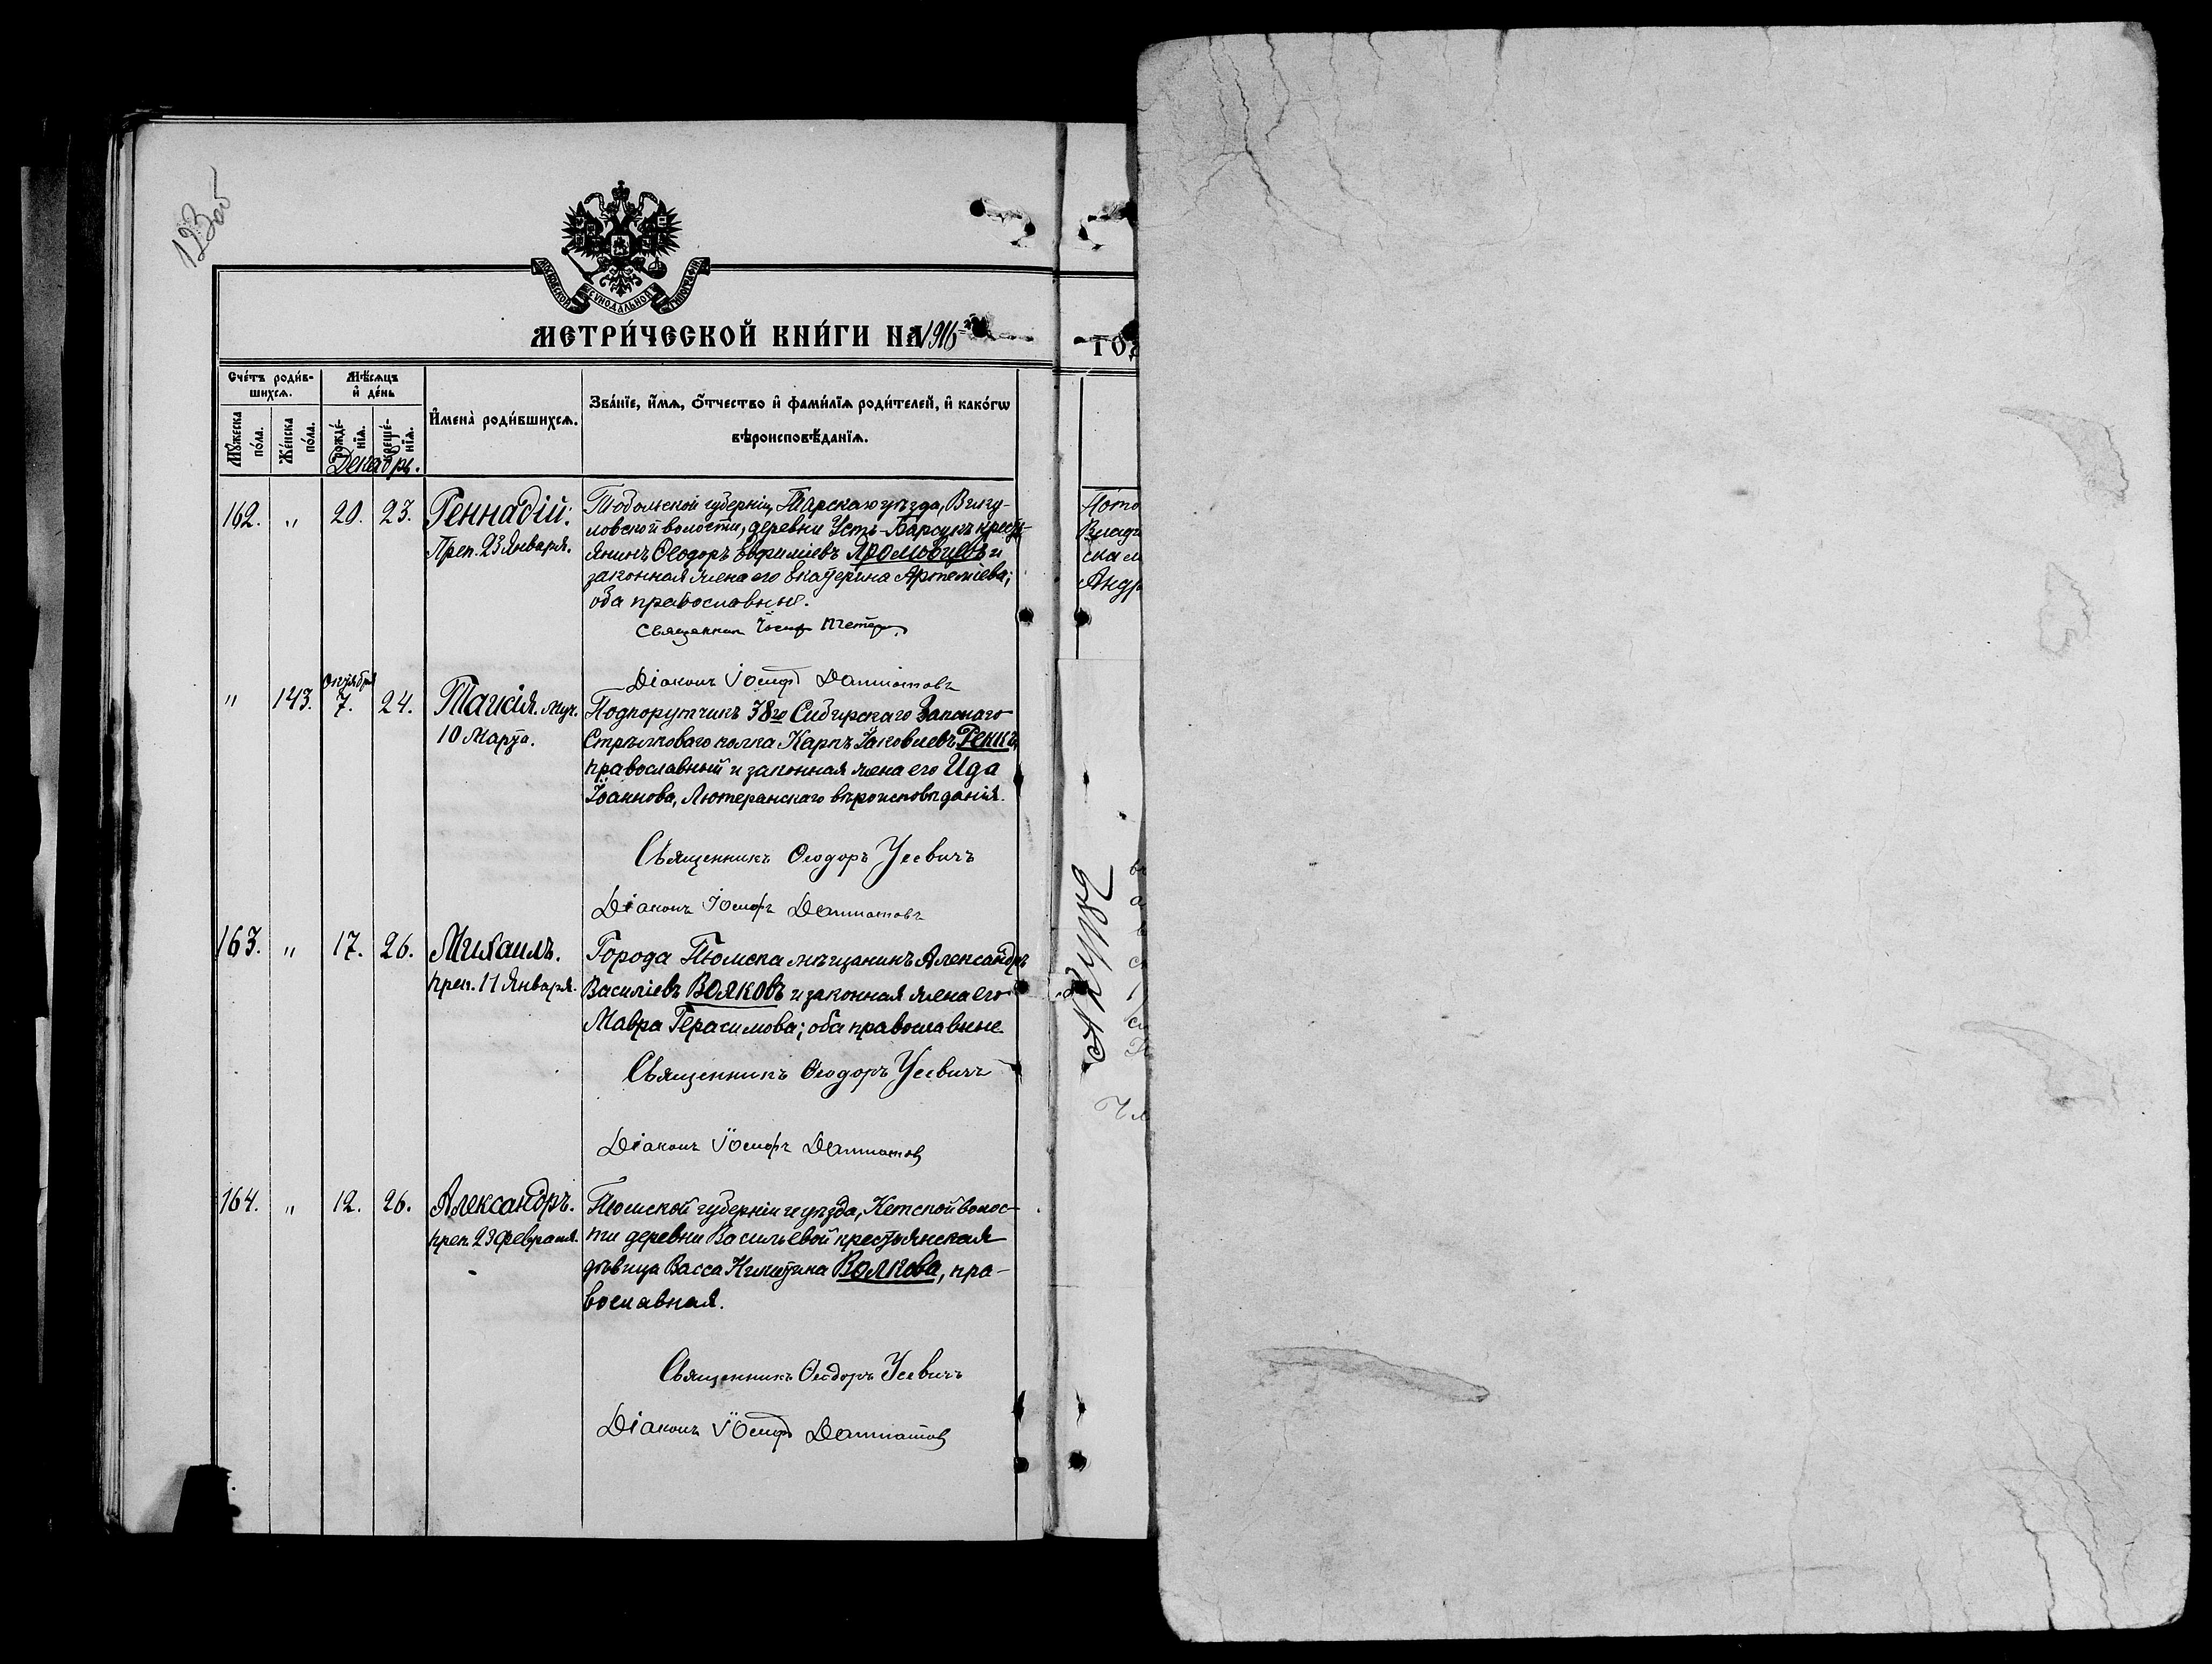 123об
МОСКОВСКОЙ СУНОДАЛЬНОЙ ТИПОГРАФІИ
МЕТРИ́ЧЕСКОЙ КНИ́ГИ НА 1916
Сче́тъ роди́в-
шихся.
Мѣ́сяцъ
и҆ де́нь
Мꙋ́жеска
по́ла.
Же́нска
по́ла.
рожде́-
нїя.
креще́-
нїя.
И҆мена̀ роди́вшихся.
Зва́нїе, и҆́мя, ѻ҆́тчество и҆ фами́лїя роди́телей, и҆ како́гѡ
вѣроисповѣ́данїя.
Декабрь.
162. " 20. 23. Геннадій. Тобольской губерніи, Тарскаго уѣзда, Вику-
ловской волости, деревни Усть-Барсукъ кресть-
Преп. 23 Января. янинъ Ѳеодоръ Евфиміевъ и
законная жена его Екатерина Артеміева;
оба православные.
Священник Іосиф
Діаконъ Іосифъ
" 143. Октября 7. 24. Таисія. муч. Подпоручикъ 38го Сибирскаго Запаснаго
10 Марта. Стрѣлковаго полка Карпъ Іаковлевъ Ренкъ,
православный и законная жена его Ида
Іоаннова, Лютеранскаго вѣроисповѣданія.
Священникъ Ѳеодоръ Усевичъ
Діаконъ Іосифъ
163. " 17. 26. Михаилъ. Города Томска мѣщанинъ Александръ
преп. 11 Января. Василіевъ Волковъ и законная жена его
Мавра Герасимова; оба православные
Священникъ Ѳеодоръ Усевичъ
Діаконъ Іосифъ
164. " 12. 26. Александръ. Томской губерніи и уѣзда, Кетской волос-
преп. 23 Февраля. ти деревни Васильевой крестьянская
дѣвица Васса Никитина Волкова, пра-
вославная.
Священникъ Ѳеодоръ Усевичъ
Діаконъ Іосифъ
ГО
Пото
Влад
ска
Андр